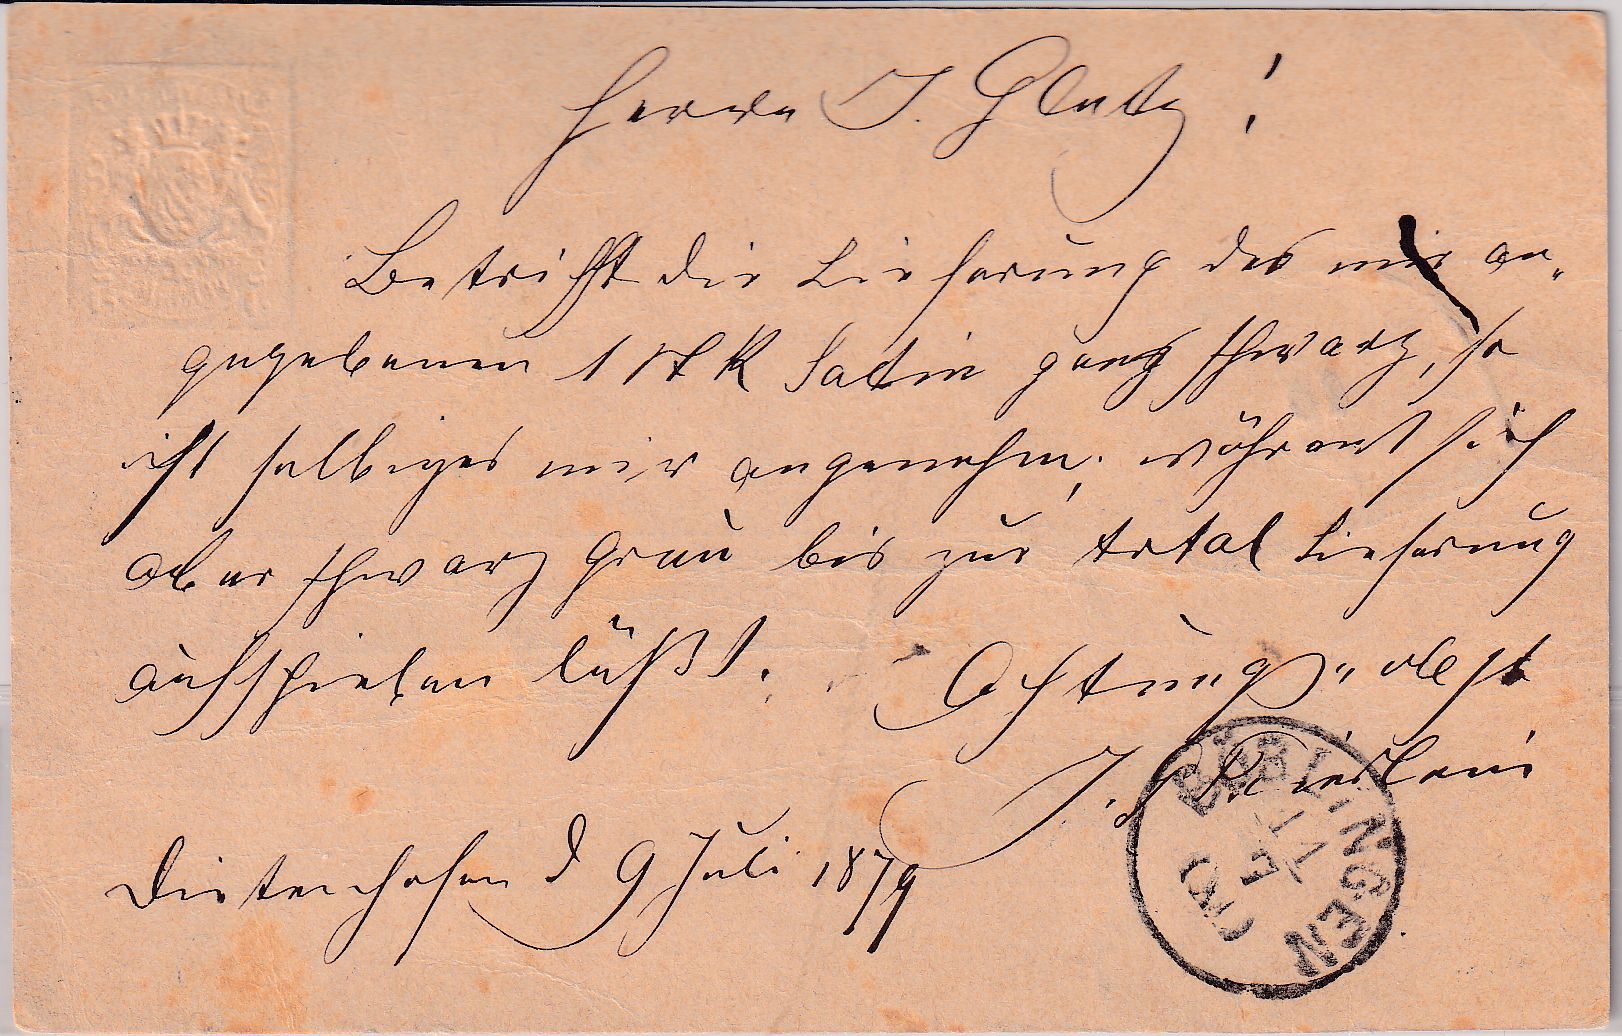 Herrn J. Glatz!
Betrifft die Lieferung des mir an„
gegebenen 1 Stk Satin ganz schwarz, so
ist selbiges mir angenehm, währent sich
aber schwarz grau bis zur total Lieferung
aufschieben läßt.
Achtungs„vollst
J.
Dietenhofen d 9 Juli 1879
BÖBLINGEN